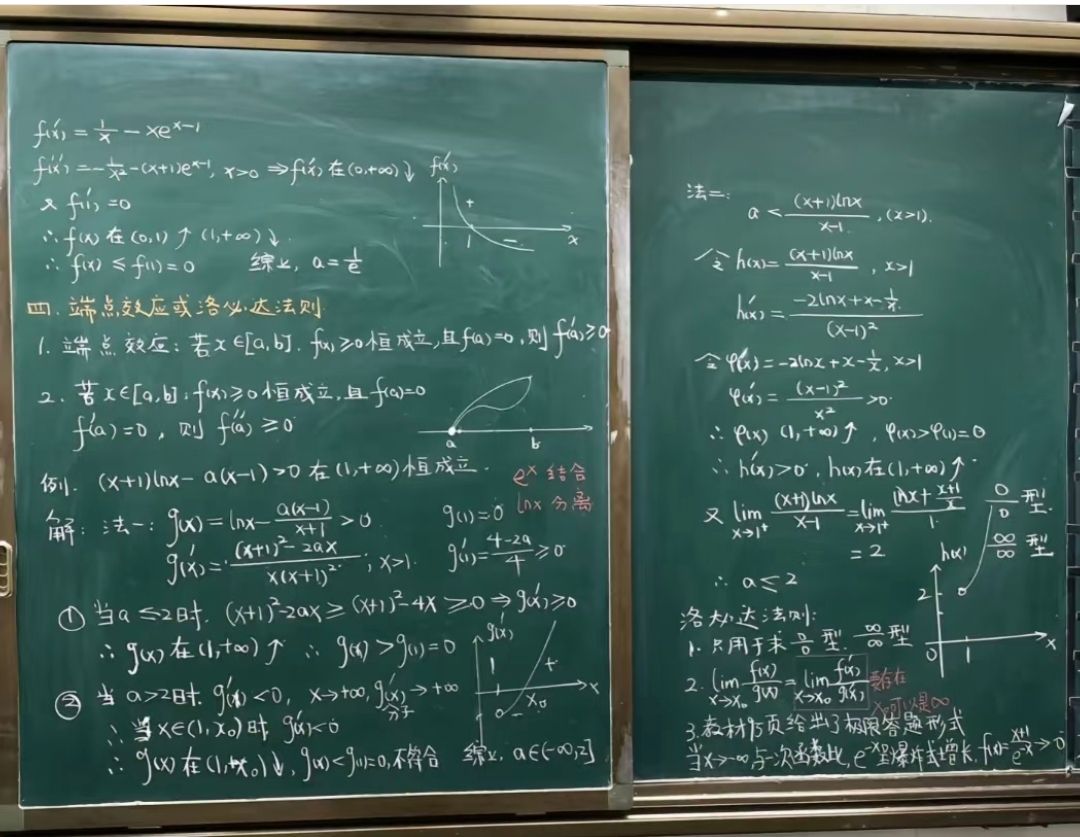 f'(x) = 1/x - xe^(x-1)
f''(x) = -1/x² - (x+1)e^(x-1), x>0 ⇒ f'(x) 在 (0,+∞) ↓
又 f'(1) = 0
∴ f(x) 在 (0,1) ↑ (1,+∞) ↓.
∴ f(x) ≤ f(1) = 0 综上, a = 1/e
f'(x)
+
1
-
x
四. 端点效应或洛必达法则.
1. 端点效应: 若 x∈[a,b]. f(x) ≥0 恒成立, 且 f(a)=0, 则 f'(a) ≥0
2. 若 x∈[a,b], f(x) ≥0 恒成立, 且 f(a)=0
f'(a) = 0, 则 f''(a) ≥ 0
a b
例1. (x+1)lnx - a(x-1) > 0 在 (1,+∞) 恒成立.
e^x 结合
lnx 分离
解: 法一: g(x) = lnx - a(x-1)/(x+1) > 0 g(1) = 0
g'(x) = ((x+1)² - 2ax)/(x(x+1)²), x>1. g'(1) = (4-2a)/4 ≥ 0
① 当 a ≤ 2 时. (x+1)² - 2ax ≥ (x+1)² - 4x ≥ 0 ⇒ g'(x) ≥ 0
∴ g(x) 在 (1,+∞) ↑ ∴ g(x) > g(1) = 0
② 当 a>2 时. g'(1) < 0, x→+∞, g'(x)分子 → +∞
∴ 当 x∈(1,x₀) 时 g'(x) < 0
∴ g(x) 在 (1,x₀) ↓, g(x) < g(1) = 0, 不符合 综上, a∈(-∞,2]
g'(x)
1
+
0 - x₀
x
法二:
a < (x+1)lnx/(x-1), (x>1).
令 h(x) = (x+1)lnx/(x-1), x>1
h'(x) = (-2lnx + x - 1/x)/(x-1)²
令 φ(x) = -2lnx + x - 1/x, x>1
φ'(x) = (x-1)²/x² > 0.
∴ φ(x) (1,+∞) ↑, φ(x) > φ(1) = 0
∴ h'(x) > 0, h(x) 在 (1,+∞) ↑
又 lim x→1⁺ (x+1)lnx/(x-1) = lim x→1⁺ (lnx + (x+1)/x)/1
= 2
∴ a ≤ 2
0/0 型.
∞/∞ 型
h(x)
2
0 1 x
洛必达法则:
1. 只用于求 0/0 型. ∞/∞ 型
2. lim x→x₀ f(x)/g(x) = lim x→x₀ f'(x)/g'(x) 要存在
x₀可以是∞
3. 教材95页给出了极限答题形式
当 x→-∞ 与一次函数比, e^(-x) 呈爆炸式增长. f(x) = (x+1)/e^(-x) → 0